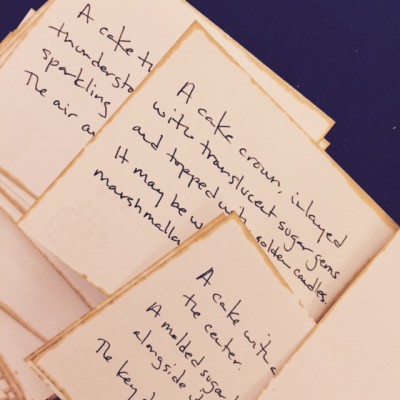 A cake
thunderst
sparkling
The air
A cake crown, inlayed
with translucent sugar gems
and topped with golden candles.
It may be
marshmalla
A cake with a
the center.
A molded sugar
alongside
The key